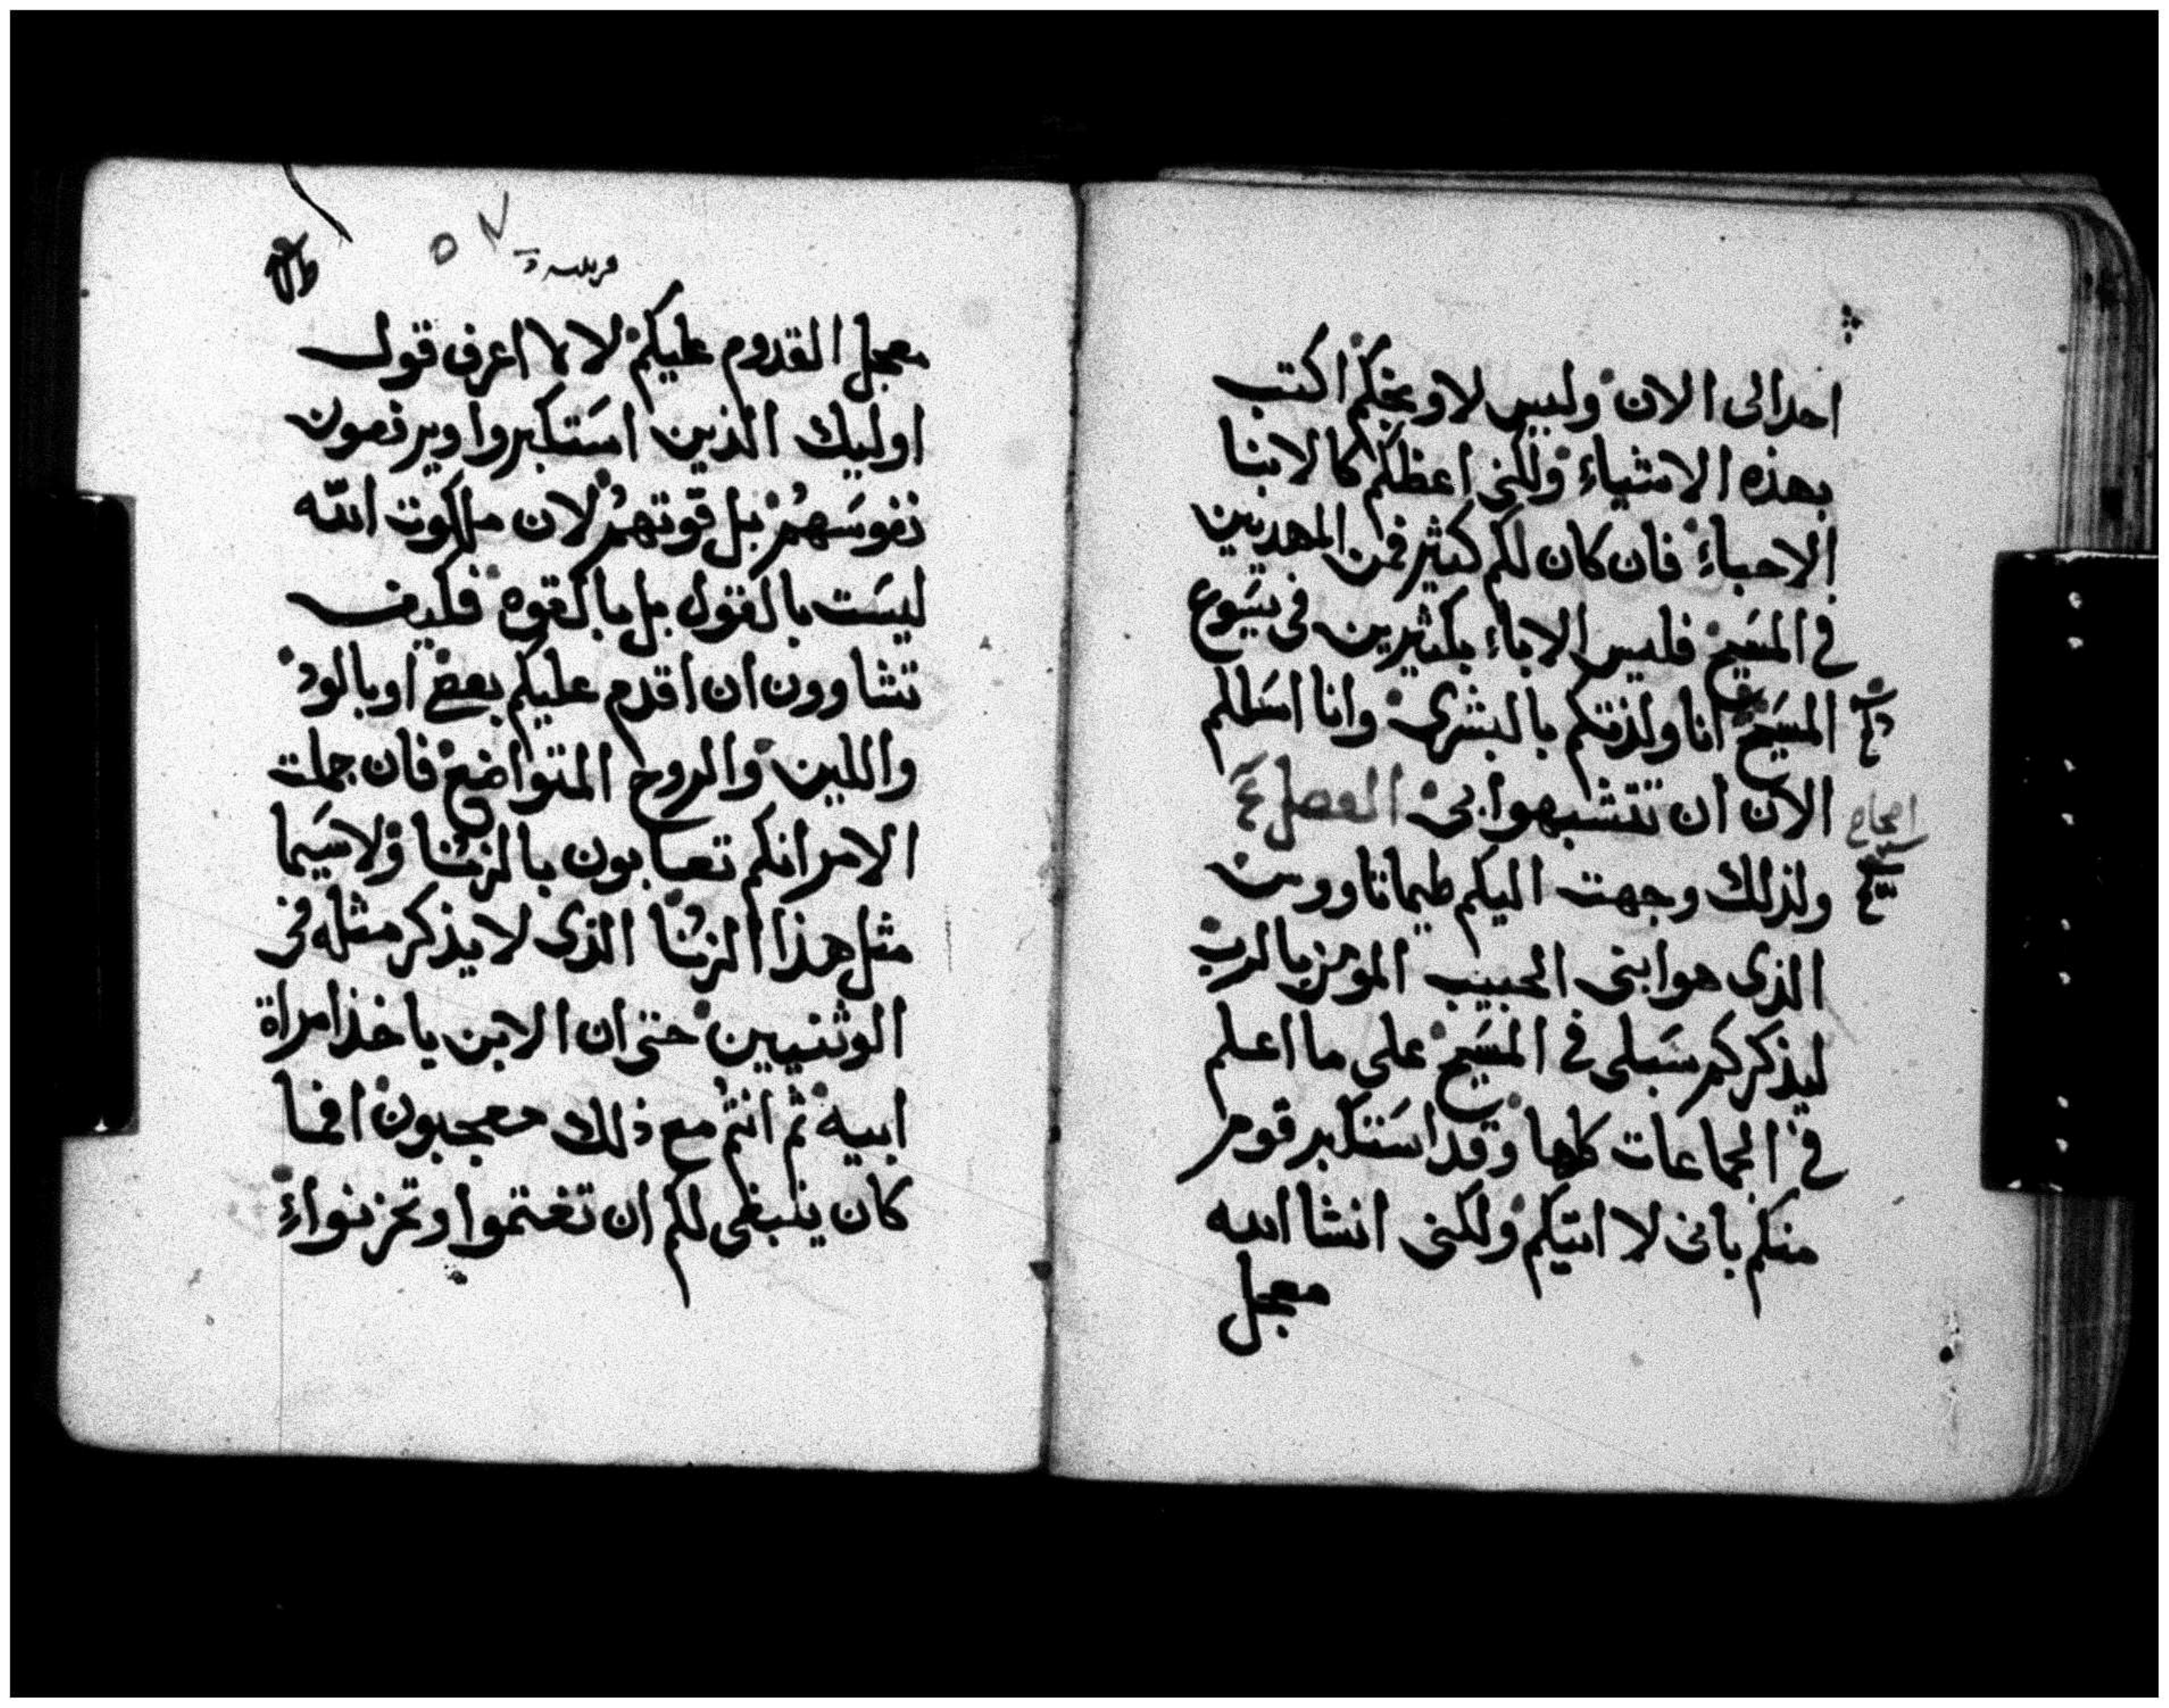 احدا الى الان وليس لاوبخكم اكتب
بهذه الاشياء ولكني اعظكم كالابنا
الاحباء فان كان لكم كثير من المهديين
في المسيح فليس الاباء بكثيرين في يسوع
المسيح انا ولدتكم بالبشرى وانا اسالكم
الان ان تتشبهوا بى الفصل ٤
ولذلك وجهت اليكم طيماتاووس
الذى هو ابنى الحبيب المومن بالرب
ليذكركم سبلى فى المسيح على ما اعلم
في الجماعات كلها وقد استكبر قوم
منكم بانى لا اتيكم ولكنى انشا الله
معجل
معجل القدوم عليكم لا لا اعرف قول
اوليك الذين استكبروا ويرفعون
نفوسهم بل قوتهم لان ملكوت الله
ليست بالقول بل بالقوه فكيف
تشاوون ان اقدم عليكم بعض او بالود
واللين والروح المتواضع فان جملت
الامر انكم تعابون بالزنا ولاسيما
مثل هذا الزنا الذى لا يذكر مثله فى
الوثنيين حتى ان الابن ياخذ امراة
ابيه ثم انتم مع ذلك معجبون افما
كان ينبغى لكم ان تغتموا وتحزنوا